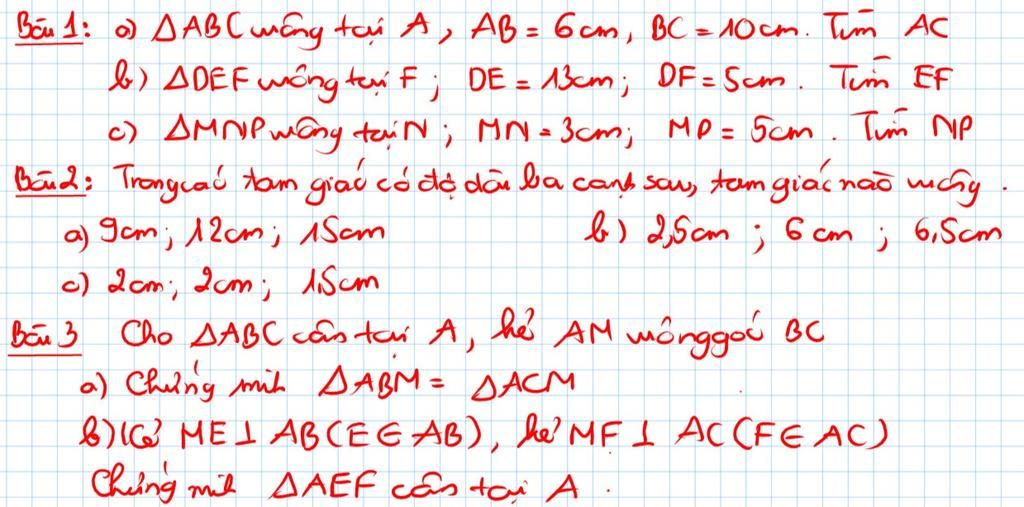 Bài 1: a) ΔABC vuông tại A, AB = 6cm, BC = 10cm. Tìm AC
b) ΔDEF vuông tại F; DE = 13cm; DF = 5cm. Tìm EF
c) ΔMNP vuông tại N; MN = 3cm; MP = 5cm. Tìm NP
Bài 2: Trong các tam giác có độ dài ba cạnh sau, tam giác nào vuông.
a) 9cm; 12cm; 15cm b) 2,5cm; 6cm; 6,5cm
c) 2cm; 2cm; 1,5cm
Bài 3 Cho ΔABC cân tại A, kẻ AM vuông góc BC
a) Chứng minh ΔABM = ΔACM
b) Kẻ ME ⊥ AB (E ∈ AB), kẻ MF ⊥ AC (F ∈ AC)
Chứng minh ΔAEF cân tại A.